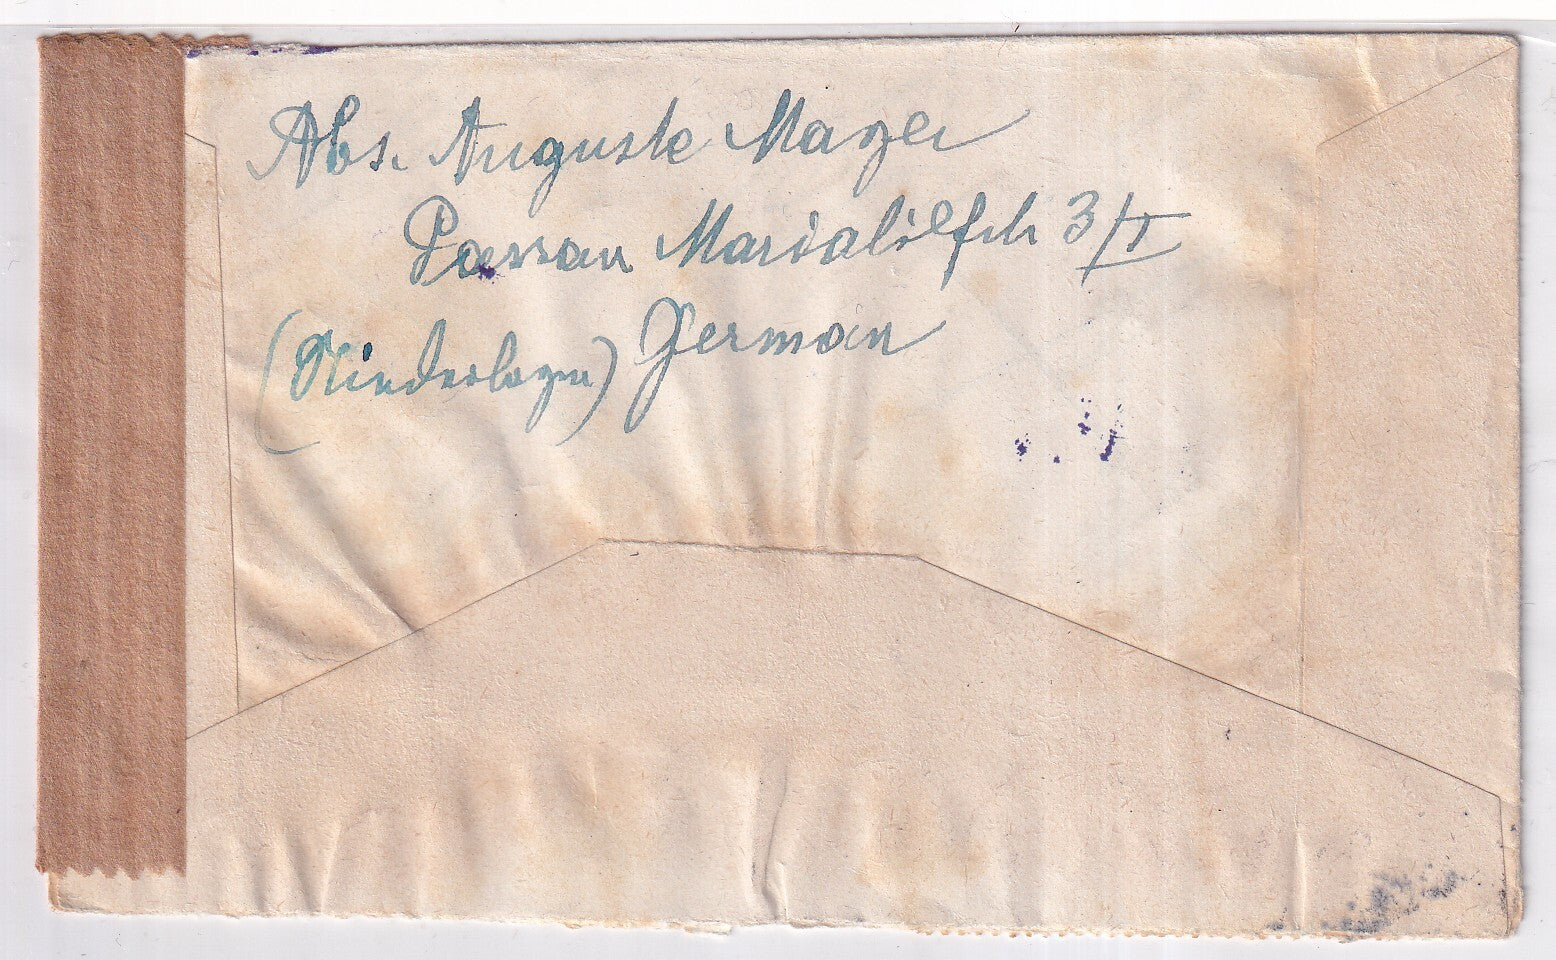 Abs. Auguste Mayer
Passau Mariahilfstr 3/I
(Niederbayern) German